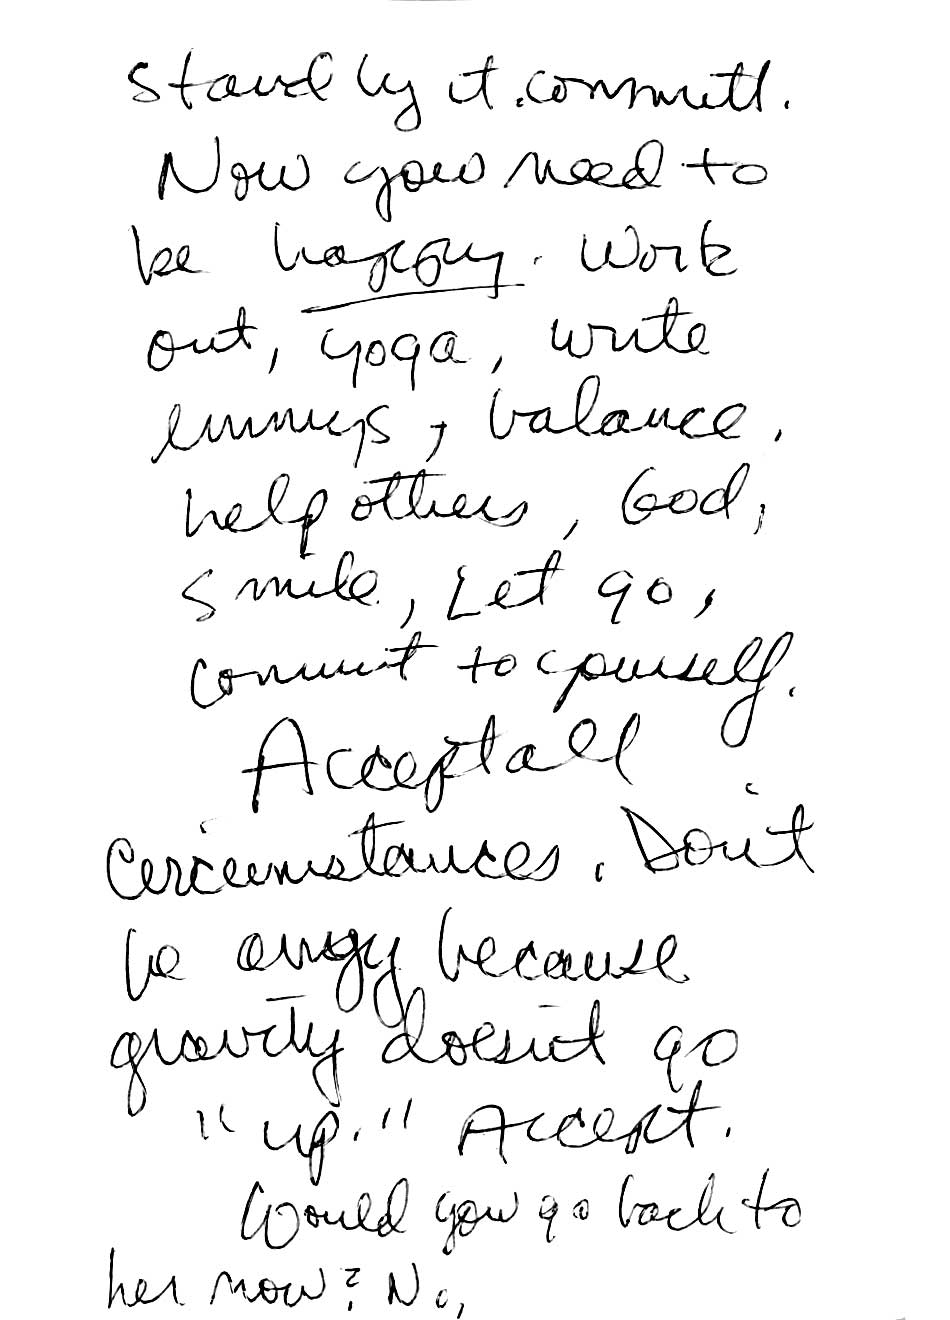 stand by it. committ.
Now you need to
be happy. Work
out, yoga, write
emmys, balance,
help others, God,
smile, Let go,
commit to yourself.
Accept all
circumstances. Don't
be angry because
gravity doesn't go
"up." Accept.
Would you go back to
her now? No,